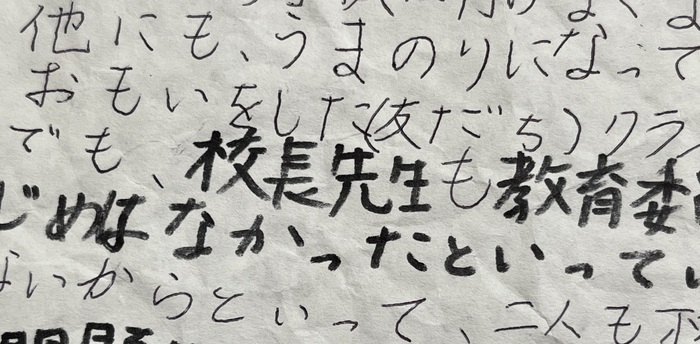 他にも、うまのりになって
おもいをした(友だち)クラ
でも、校長先生も教育委
じめはなかったといってい
ないからといって、二人も